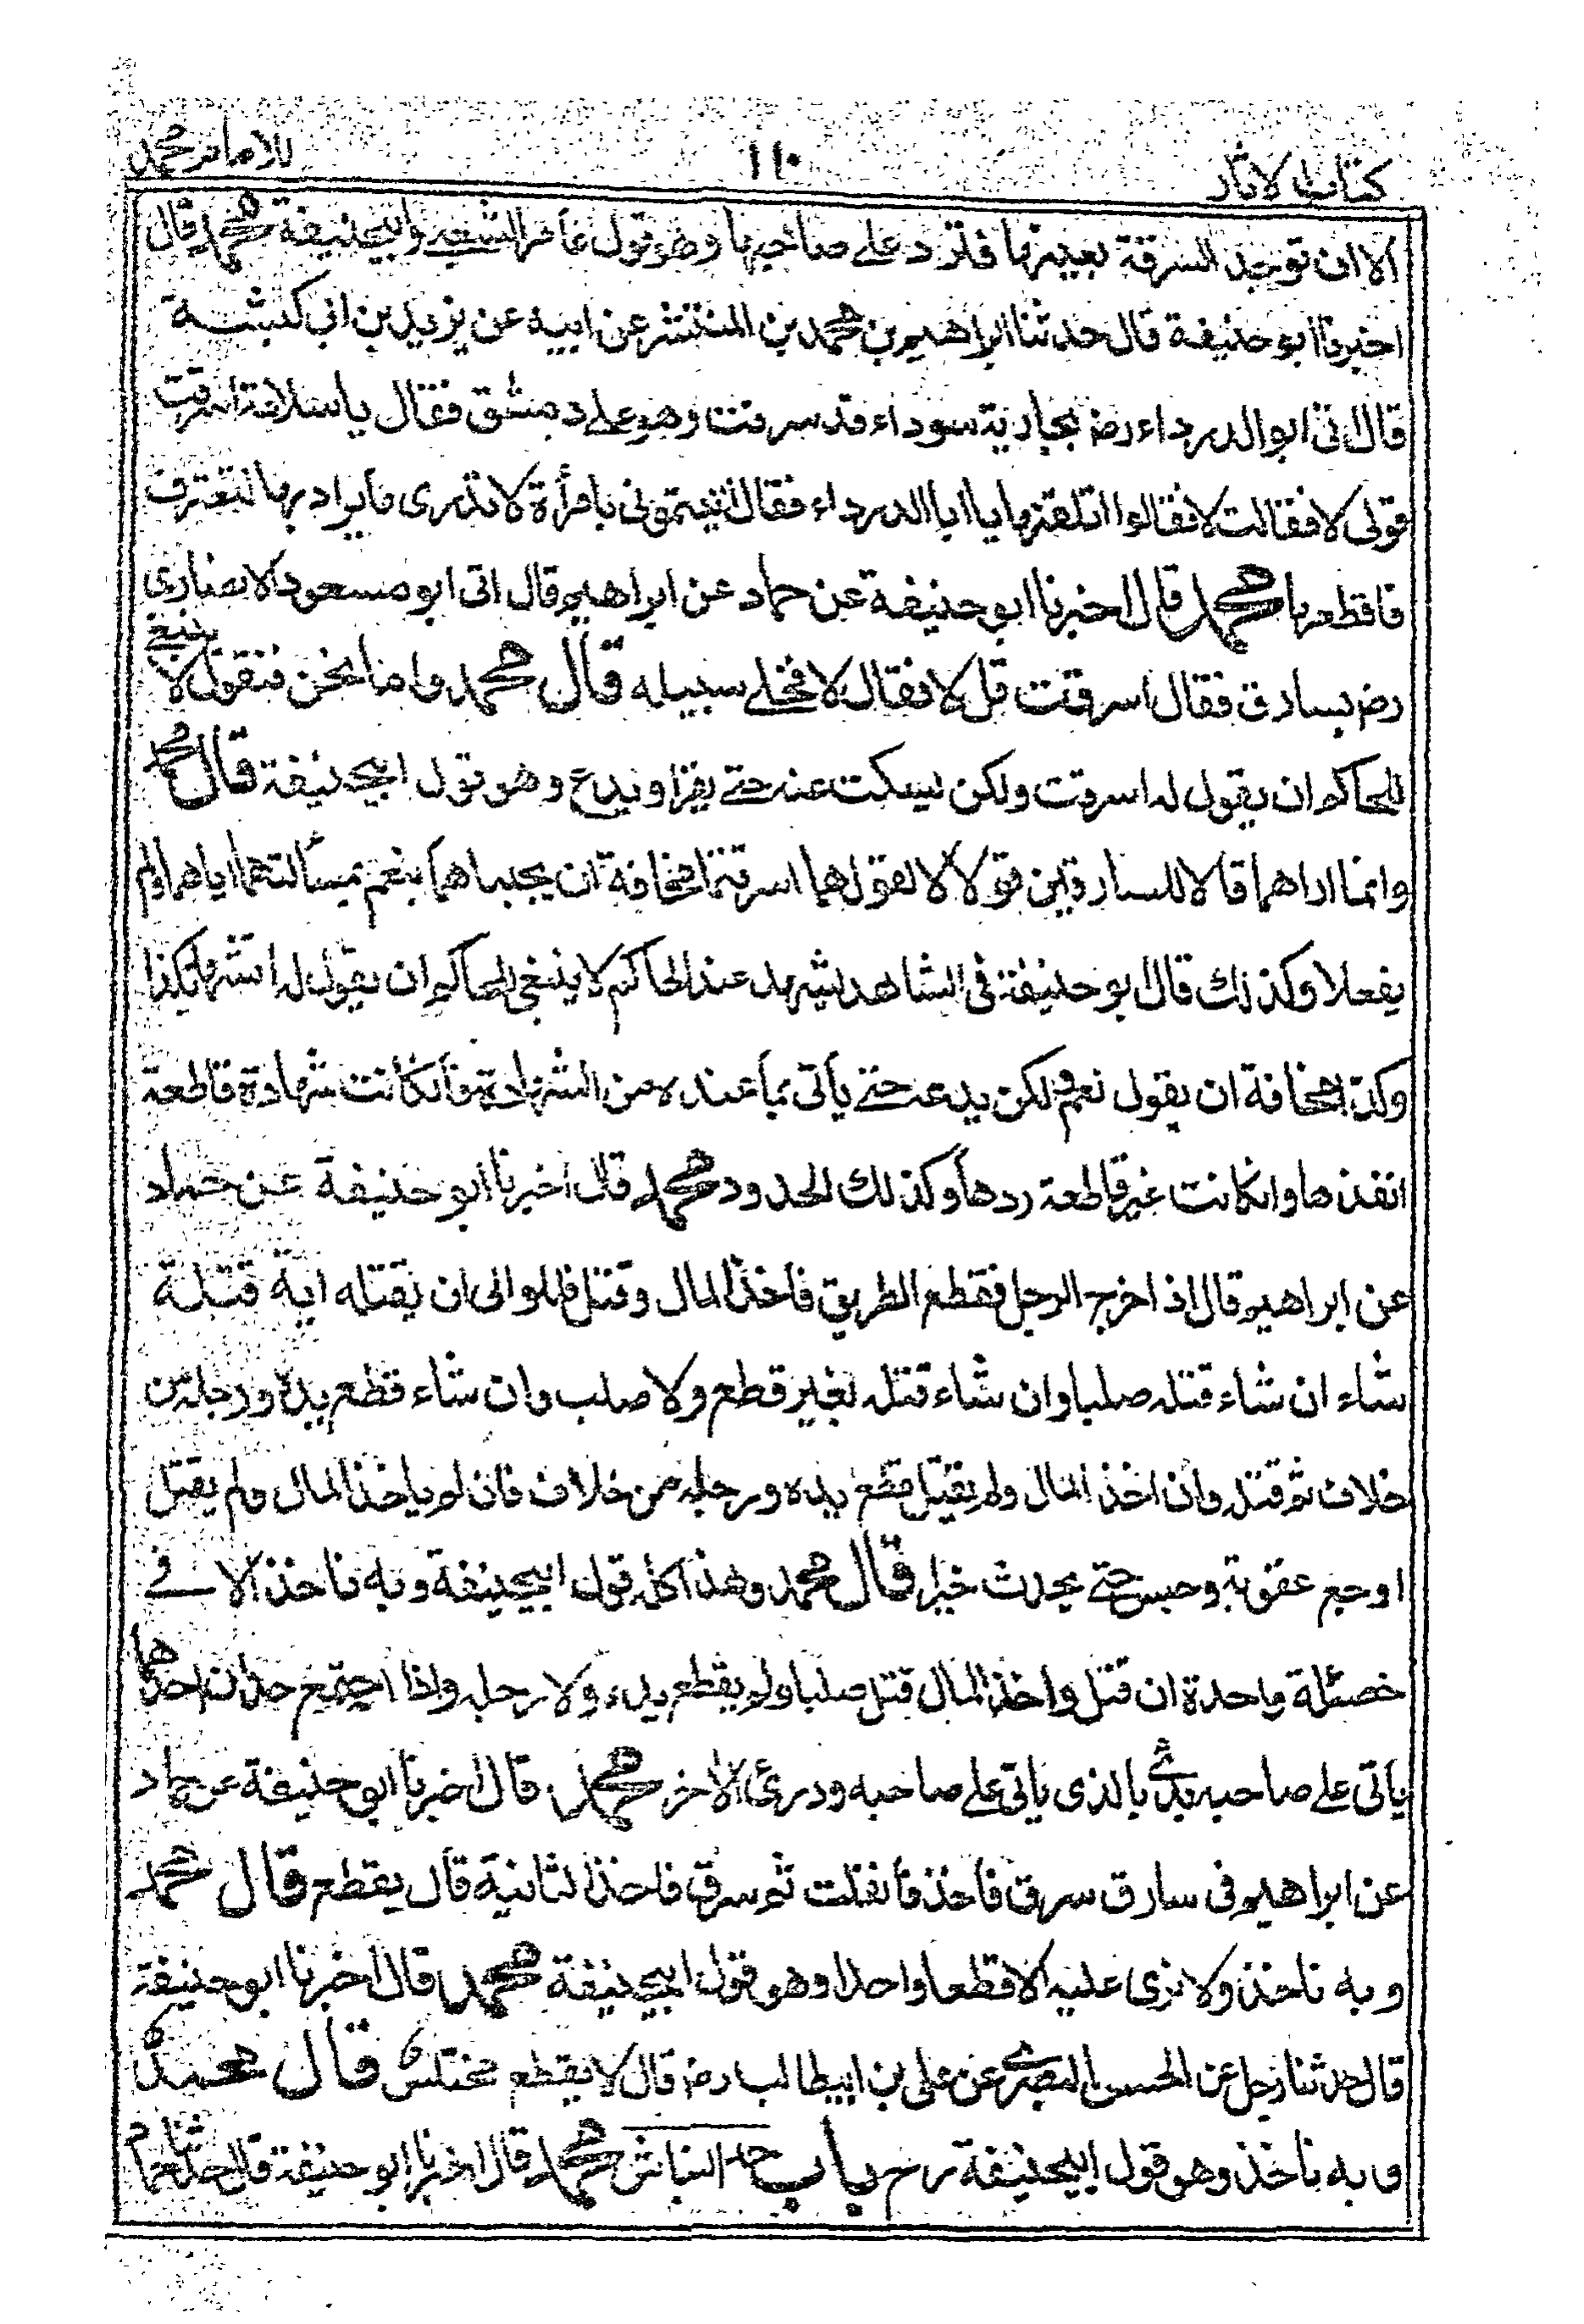 كتاب الاثار ١١٠ للامام محمد
الا ان توجد السرقة بعينها فترد على صاحبها وهو قول عامر الشعبي وابيحنيفة محمد قال
اخبرنا ابو حنيفة قال حدثنا ابراهيم بن محمد بن المنتشر عن ابيه عن يزيد بن ابي كبشة
قال اتى ابو الدرداء رض بجارية سوداء قد سرقت وهو على دمشق فقال يا سلامة اسرقت
قولي لا فقالت لا فقالوا اتلقنها يا ابا الدرداء فقال اتيتموني بامرأة لا تدرى ما يراد بها لتعترف
فاقطعها محمد قال اخبرنا ابو حنيفة عن حماد عن ابراهيم قال اتى ابو مسعود الانصاري
رض بسارق فقال اسرقت قل لا فقال لا فخلى سبيله قال محمد واما نحن فنقول لا ينبغي
للحاكم ان يقول له اسرقت ولكن ليسكت عنه حتى يقر او يدع وهو قول ابيحنيفة قال محمد
وانما اراهما قالا للسارقين قولا لا لقولهما اسرقتما مخافة ان يجيباهما بنعم بمسألتهما اياهما ولم
يفعلا وكذلك قال ابو حنيفة في الشاهد يشهد عند الحاكم لا ينبغي للحاكم ان يقول له اتشهد بكذا
وكذا مخافة ان يقول نعم ولكن يدعه حتى يأتى بما عنده من الشهادة فانكانت شهادة قاطعة
انفذها وانكانت غير قاطعة ردها وكذلك الحدود محمد قال اخبرنا ابو حنيفة عن حماد
عن ابراهيم قال اذا خرج الرجل فقطع الطريق فأخذ المال وقتل فللوالى ان يقتله اية قتلة
شاء ان شاء قتله صلبا وان شاء قتله بغير قطع ولا صلب وان شاء قطع يده ورجله من
خلاف ثم قتله وان اخذ المال ولم يقتل قطع يده ورجله من خلاف فان لم يأخذ المال ولم يقتل
اوجع عقوبة وحبس حتى يحدث خيرا قال محمد وهذا كله قول ابيحنيفة وبه ناخذ الا في
خصلة واحدة ان قتل واخذ المال قتل صلبا ولم يقطع يده ولا رجله واذا اجتمع حدان احدهما
يأتى على صاحبه بدئ بالذى ياتى على صاحبه ودرئ الاخر محمد قال اخبرنا ابو حنيفة عن حماد
عن ابراهيم في سارق سرق فأخذ فأنفلت ثم سرق فاخذ الثانية قال يقطع قال محمد
وبه ناخذ ولا نرى عليه الا قطعا واحدا وهو قول ابيحنيفة محمد قال اخبرنا ابو حنيفة
قال حدثنا رجل عن الحسن البصري عن على بن ابيطالب رض قال لا يقطع مختلس قال محمد
وبه ناخذ وهو قول ابيحنيفة رح باب حد النباش محمد قال اخبرنا ابو حنيفة قال حدثنا حماد